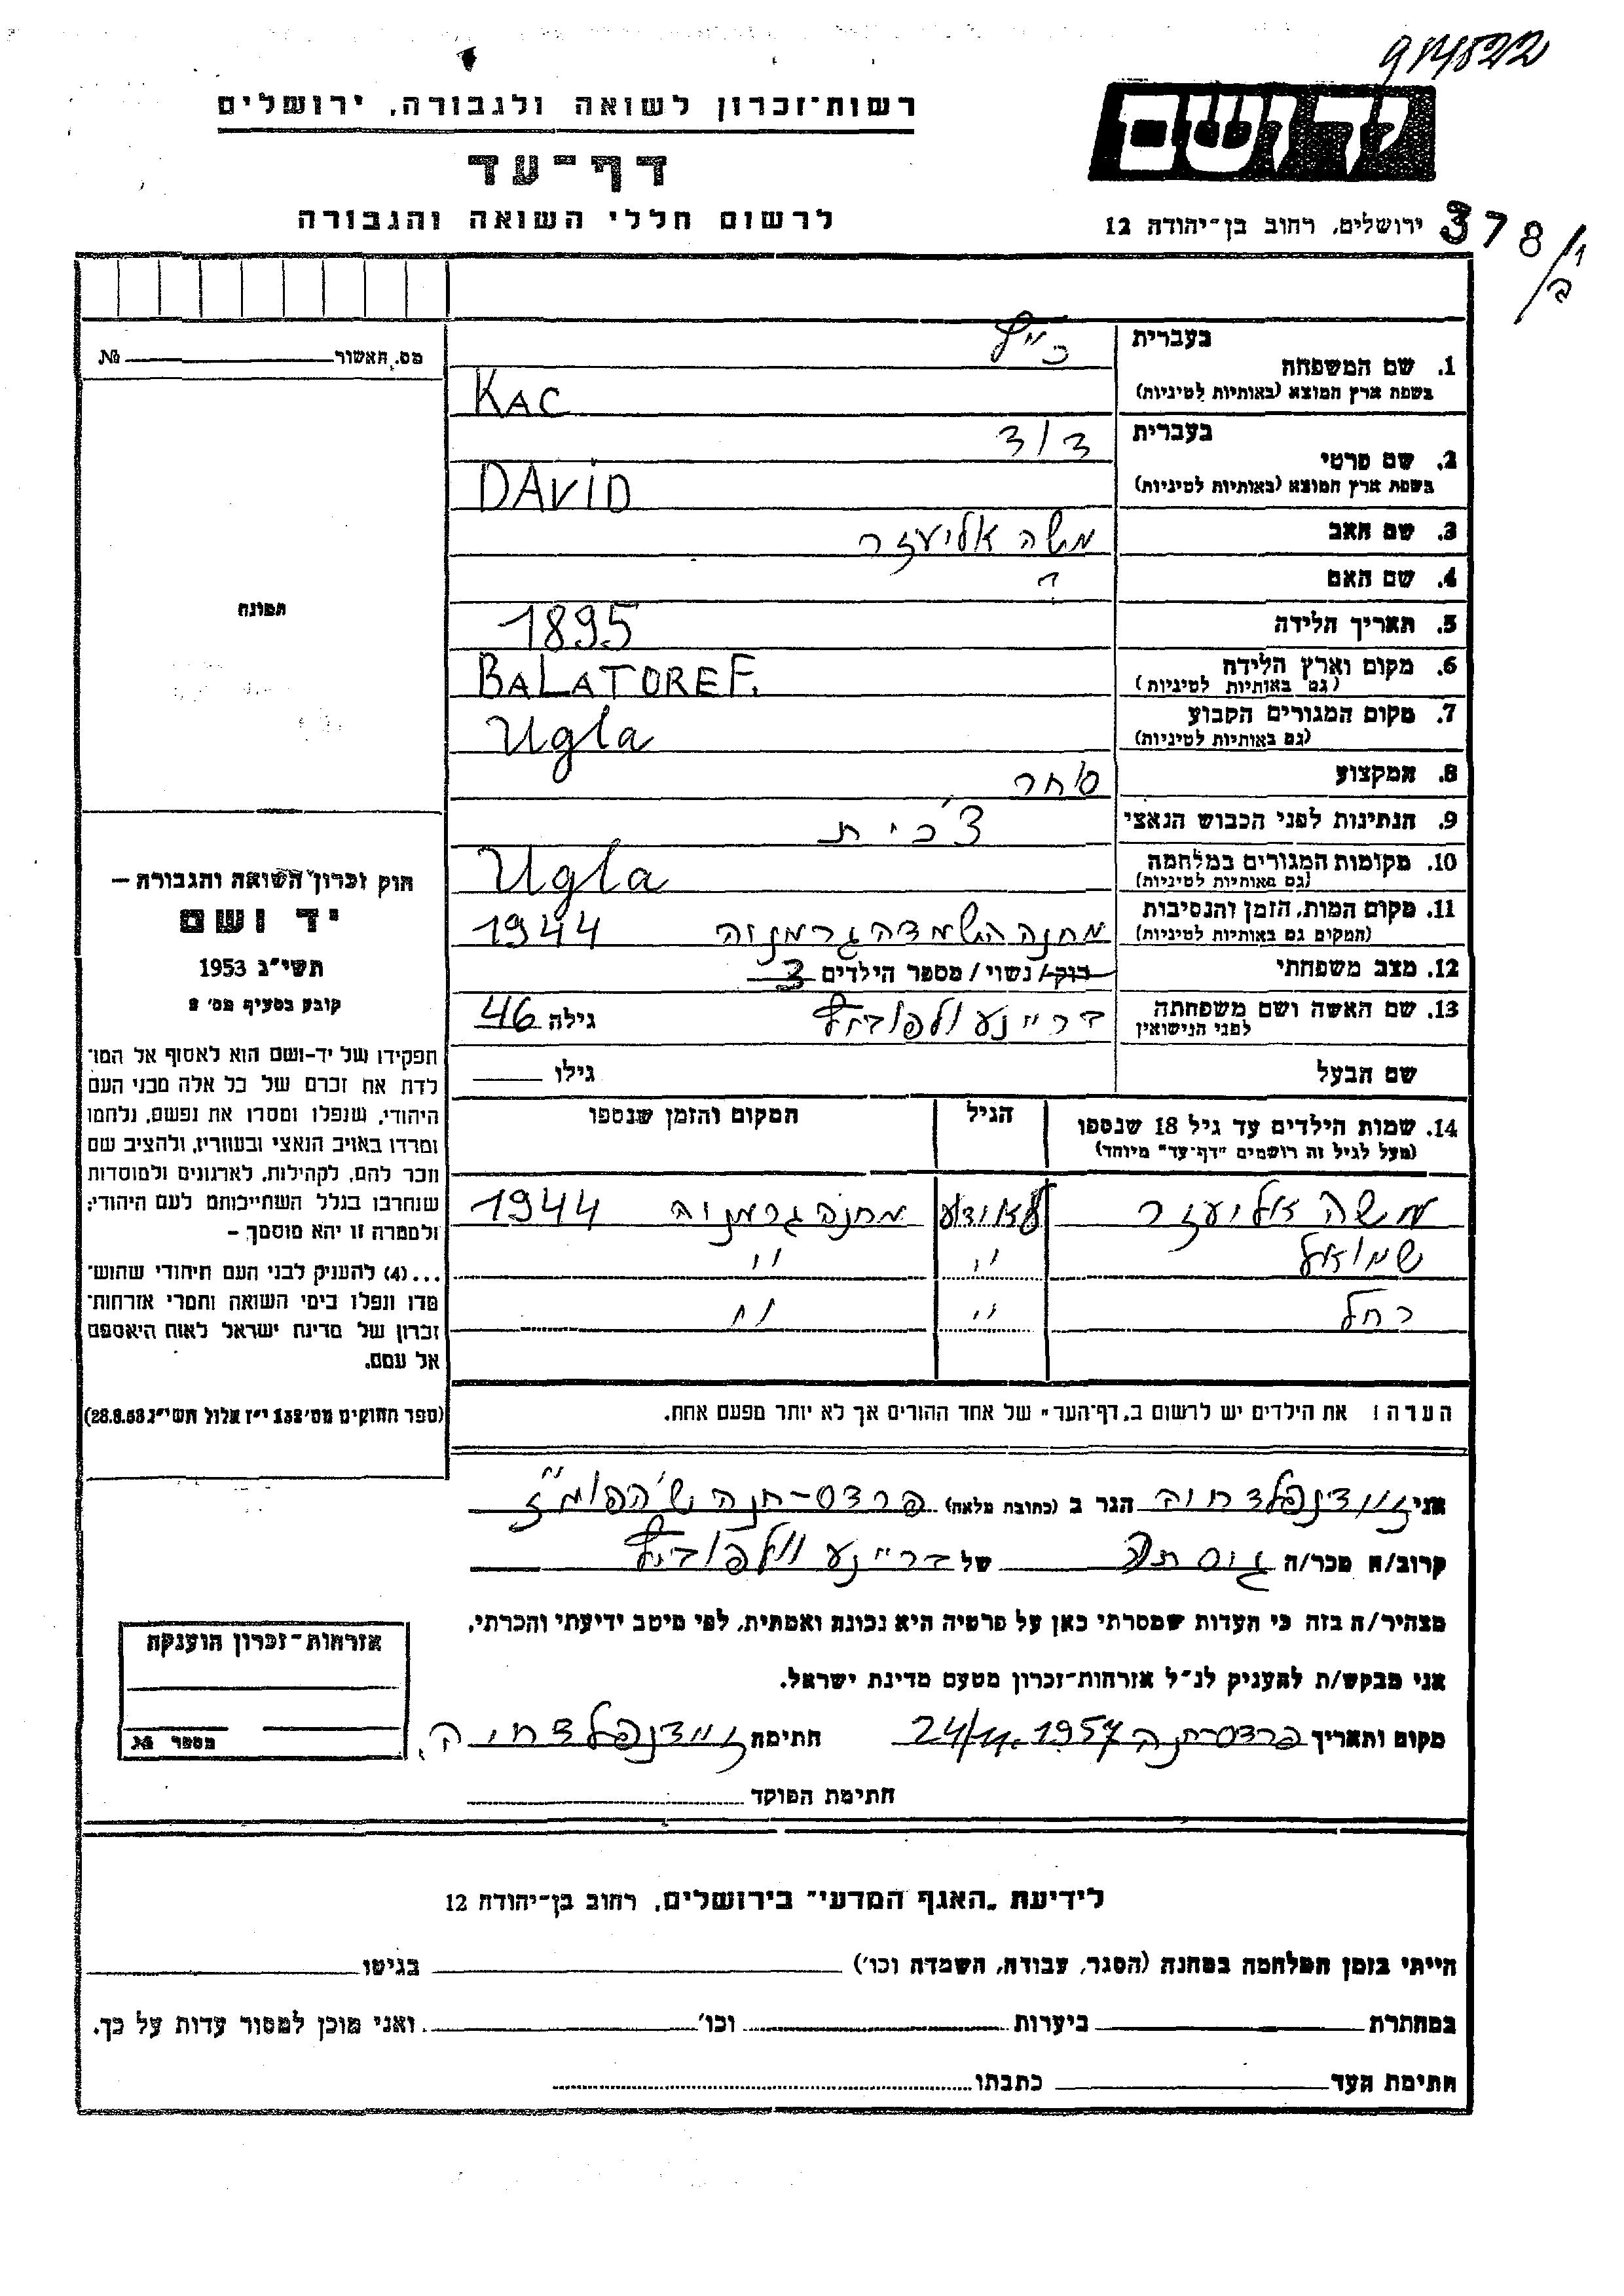 914522
רשות־זכרון לשואה ולגבורה, ירושלים
יד ושם
דף־עד
לרשום חללי השואה והגבורה
ירושלים, רחוב בן־יהודה 12
378/י
ב
מס. האשור № 
בעברית
כ"ץ
1. שם המשפחה
בשפת ארץ המוצא (באותיות לטיניות)
KAC
בעברית
דוד
2. שם פרטי
בשפת ארץ המוצא (באותיות לטיניות)
DAVID
3. שם האב
משה אליעזר
4. שם האם
?
5. תאריך הלידה
1895
6. מקום וארץ הלידה
(גם באותיות לטיניות)
BALATOREF.
7. מקום המגורים הקבוע
(גם באותיות לטיניות)
Ugla
8. המקצוע
סוחר
9. הנתינות לפני הכבוש הנאצי
צ'כית
10. מקומות המגורים במלחמה
(גם באותיות לטיניות)
Ugla
11. מקום המות, הזמן והנסיבות
(המקום גם באותיות לטיניות)
מחנה השמדה גרמניה 1944
12. מצב משפחתי
רוק/ נשוי/ מספר הילדים 3
13. שם האשה ושם משפחתה
לפני הנישואין
גילה 46
שם הבעל
גילו
14. שמות הילדים עד גיל 18 שנספו
(מעל לגיל זה רושמים "דף־עד" מיוחד)
הגיל
המקום והזמן שנספו
משה אליעזר
מחנה גרמניה 1944
שמואל " "
רחל " "
הערה! את הילדים יש לרשום ב"דף־העד" של אחד ההורים אך לא יותר מפעם אחת.
תמונה
חוק זכרון השואה והגבורה –
יד ושם
תשי"ג 1953
קובע בסעיף מס' 2
תפקידו של יד-ושם הוא לאסוף אל המו־
לדת את זכרם של כל אלה מבני העם
היהודי, שנפלו ומסרו את נפשם, נלחמו
ומרדו באויב הנאצי ובעוזריו, ולהציב שם
וזכר להם, לקהילות, לארגונים ולמוסדות
שנחרבו בגלל השתייכותם לעם היהודי;
ולמטרה זו יהא מוסמך –
...(4) להעניק לבני העם היהודי שהוש־
מדו ונפלו בימי השואה והמרי אזרחות־
זכרון של מדינת ישראל לאות היאספם
אל עמם.
(ספר החוקים מס' 132 י"ז אלול תשי"ג 28.8.53)
אני זיידנפלד חיה הגר ב (כתובת מלאה) פרדס-חנה ש' הפומ"ז
קרוב/ה מכר/ה גיסתה של
מצהיר/ה בזה כי העדות שמסרתי כאן על פרטיה היא נכונה ואמתית, לפי מיטב ידיעתי והכרתי.
אני מבקש/ת להעניק לנ"ל אזרחות־זכרון מטעם מדינת ישראל.
מקום ותאריך פרדס חנה 24/11.1957 חתימה זיידנפלד חיה.
חתימת הפוקד
אזרחות־זכרון הוענקה
מספר №
לידיעת "האגף המדעי" בירושלים, רחוב בן־יהודה 12
הייתי בזמן המלחמה במחנה (הסגר, עבודה, השמדה וכו') בגיטו
במחתרת ביערות וכו' ואני מוכן למסור עדות על כך.
חתימת העד כתבתו